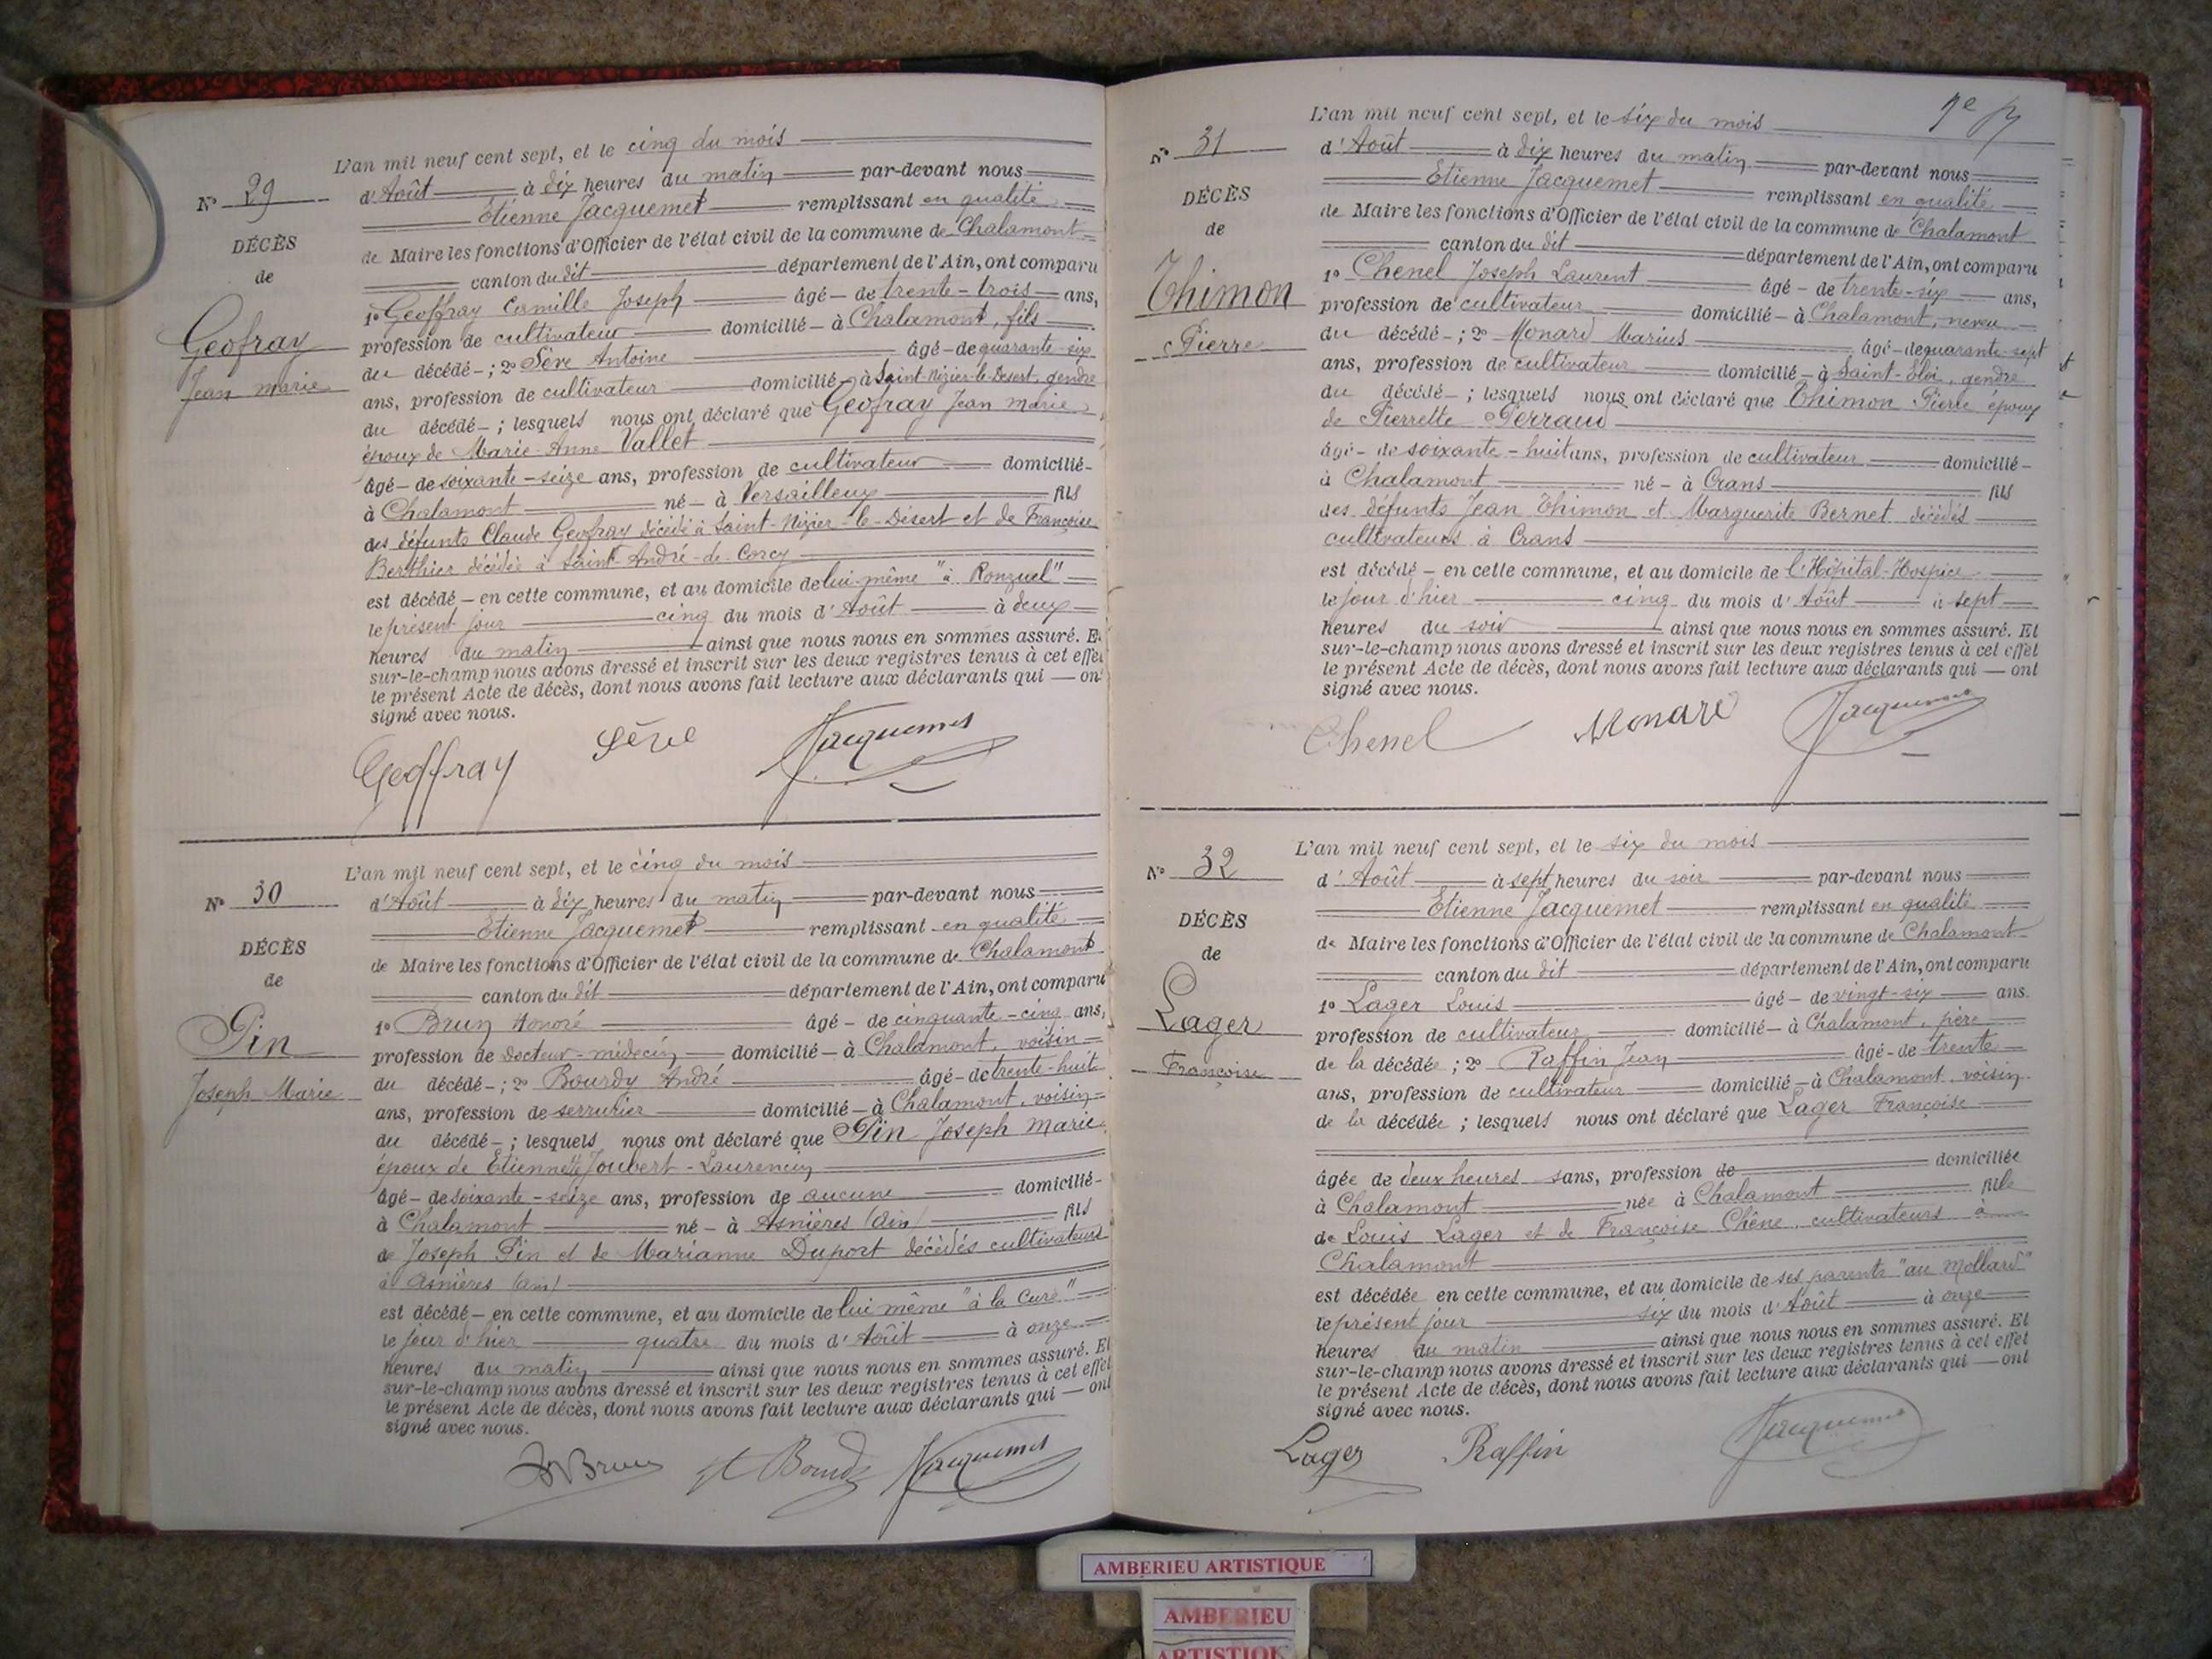 N° 29
DÉCÈS
de
Geofray
Jean marie
L'an mil neuf cent sept, et le cinq du mois
d'Août à dix heures du matin par-devant nous
Etienne Jacquemet remplissant en qualité
de Maire les fonctions d'Officier de l'état civil de la commune de Chalamont
canton du dit département de l'Ain, ont comparu
1° Geoffray Camille Joseph âgé - de trente-trois ans,
profession de cultivateur domicilié - à Chalamont, fils
du décédé - ; 2° Sève Antoine âgé - de quarante-six
ans, profession de cultivateur domicilié - à Saint-Nizier-le-Desert, gendre
du décédé - ; lesquels nous ont déclaré que Geofray Jean marie
époux de Marie-Anne Vallet
âgé - de soixante-seize ans, profession de cultivateur domicilié -
à Chalamont né - à Versailleux fils
des défunts Claude Geofray décédé à Saint-Nizier-le-Désert et de Françoise
Berthier décédée à Saint-André-de-Corcy
est décédé - en cette commune, et au domicile de lui-même "à Ronzuel"
le présent jour cinq du mois d'Août à deux
heures du matin ainsi que nous nous en sommes assuré. Et
sur-le-champ nous avons dressé et inscrit sur les deux registres tenus à cet effet
le présent Acte de décès, dont nous avons fait lecture aux déclarants qui — ont
signé avec nous.
Geoffray Sève Jacquemet
N° 30
DÉCÈS
de
Pin
Joseph Marie
L'an mil neuf cent sept, et le cinq du mois
d'Août à dix heures du matin par-devant nous
Etienne Jacquemet remplissant en qualité
de Maire les fonctions d'Officier de l'état civil de la commune de Chalamont
canton du dit département de l'Ain, ont comparu
1° Brun Honoré âgé - de cinquante-cinq ans,
profession de docteur-médecin domicilié - à Chalamont, voisin
du décédé - ; 2° Bourdy André âgé - de trente-huit
ans, profession de serrurier domicilié - à Chalamont, voisin
du décédé - ; lesquels nous ont déclaré que Pin Joseph Marie
époux de Etiennette Joubert-Laurencin
âgé - de soixante-seize ans, profession de aucune domicilié -
à Chalamont né - à Asnières (ain) fils
de Joseph Pin et de Marianne Duport décédés cultivateurs
à Asnières (ain)
est décédé - en cette commune, et au domicile de lui même "à la Cure"
le jour d'hier quatre du mois d'Août à onze
heures du matin ainsi que nous nous en sommes assuré. Et
sur-le-champ nous avons dressé et inscrit sur les deux registres tenus à cet effet
le présent Acte de décès, dont nous avons fait lecture aux déclarants qui — ont
signé avec nous.
Brun Bourdy Jacquemet
N° 31
DÉCÈS
de
Thimon
Pierre
L'an mil neuf cent sept, et le six du mois
d'Août à dix heures du matin par-devant nous
Etienne Jacquemet remplissant en qualité
de Maire les fonctions d'Officier de l'état civil de la commune de Chalamont
canton du dit département de l'Ain, ont comparu
1° Chenel Joseph Laurent âgé - de trente-six ans,
profession de cultivateur domicilié - à Chalamont, neveu
du décédé - ; 2° Monard Marius âgé - de quarante-sept
ans, profession de cultivateur domicilié - à Saint-Eloi, gendre
du décédé - ; lesquels nous ont déclaré que Thimon Pierre époux
de Pierrette Perraud
âgé - de soixante-huit ans, profession de cultivateur domicilié -
à Chalamont né - à Crans fils
des défunts Jean Thimon et Marguerite Bernet décédés
cultivateurs à Crans
est décédé - en cette commune, et au domicile de l'Hôpital-Hospice
le jour d'hier cinq du mois d'Août à sept
heures du soir ainsi que nous nous en sommes assuré. Et
sur-le-champ nous avons dressé et inscrit sur les deux registres tenus à cet effet
le présent Acte de décès, dont nous avons fait lecture aux déclarants qui — ont
signé avec nous.
Chenel Monard Jacquemet
N° 32
DÉCÈS
de
Lager
Françoise
L'an mil neuf cent sept, et le six du mois
d'Août à sept heures du soir par-devant nous
Etienne Jacquemet remplissant en qualité
de Maire les fonctions d'Officier de l'état civil de la commune de Chalamont
canton du dit département de l'Ain, ont comparu
1° Lager Louis âgé - de vingt-six ans.
profession de cultivateur domicilié - à Chalamont, père
de la décédée ; 2° Raffin Jean âgé - de trente
ans, profession de cultivateur domicilié - à Chalamont, voisin
de la décédée ; lesquels nous ont déclaré que Lager Françoise
âgée de deux heures sans, profession de domiciliée
à Chalamont née à Chalamont fille
de Louis Lager et de Françoise Chêne, cultivateurs à
Chalamont
est décédée en cette commune, et au domicile de ses parents "au Mollard"
le présent jour six du mois d'Août à onze
heures du matin ainsi que nous nous en sommes assuré. Et
sur-le-champ nous avons dressé et inscrit sur les deux registres tenus à cet effet
le présent Acte de décès, dont nous avons fait lecture aux déclarants qui — ont
signé avec nous.
Lager Raffin Jacquemet
AMBERIEU ARTISTIQUE
AMBERIEU